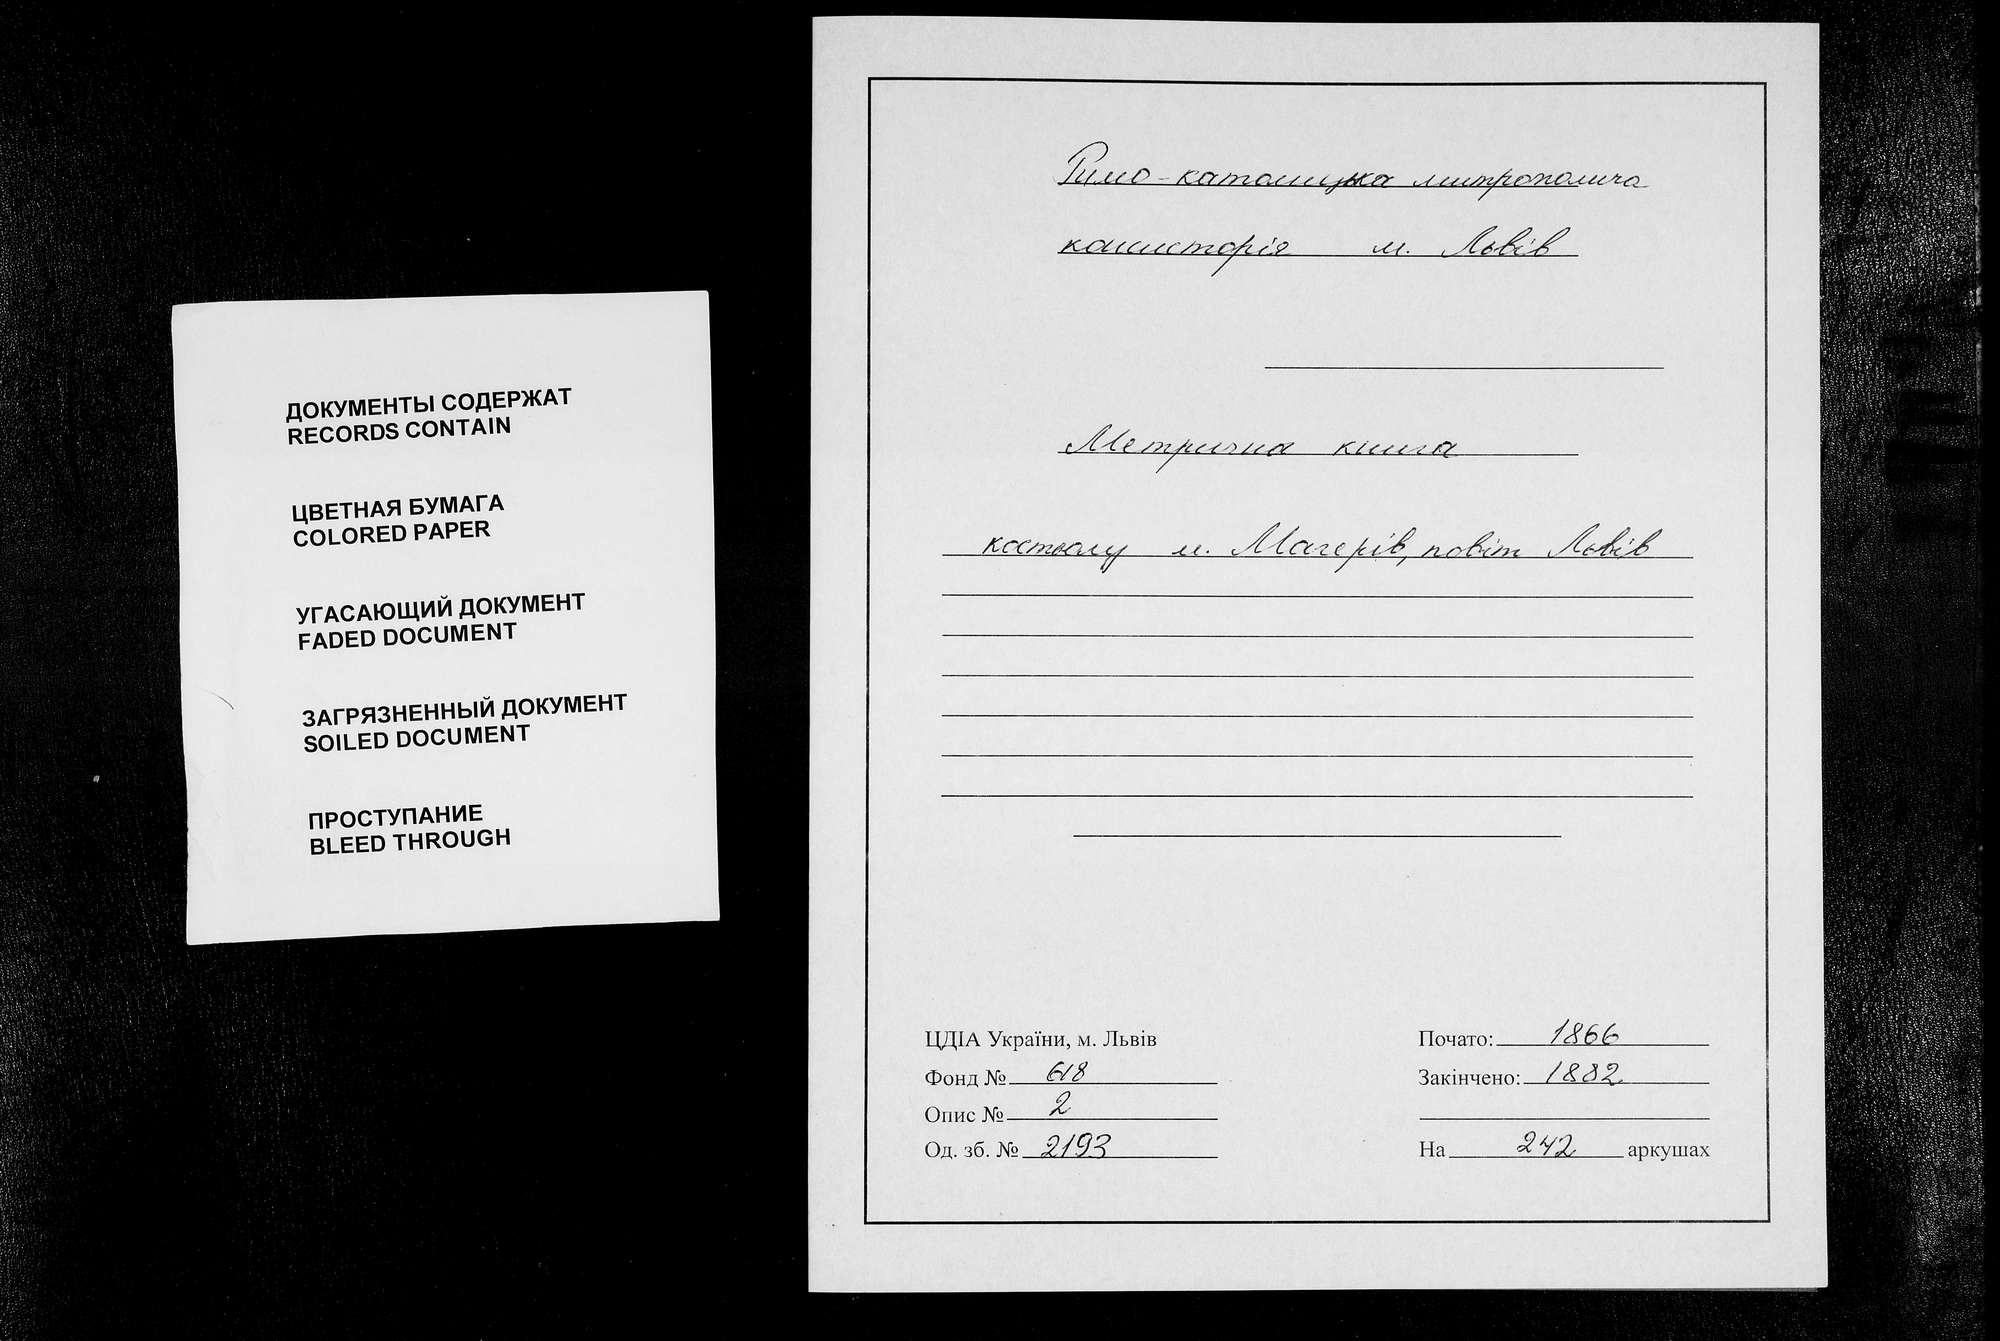 ДОКУМЕНТЫ СОДЕРЖАТ
RECORDS CONTAIN
ЦВЕТНАЯ БУМАГА
COLORED PAPER
УГАСАЮЩИЙ ДОКУМЕНТ
FADED DOCUMENT
ЗАГРЯЗНЕННЫЙ ДОКУМЕНТ
SOILED DOCUMENT
ПРОСТУПАНИЕ
BLEED THROUGH
Римо-католицька митрополича
консисторія м. Львів
Метрична книга
костьолу м. Магерів, повіт Львів
ЦДІА України, м. Львів
Фонд № 618
Опис № 2
Од. зб. № 2193
Почато: 1866
Закінчено: 1882
На 242 аркушах